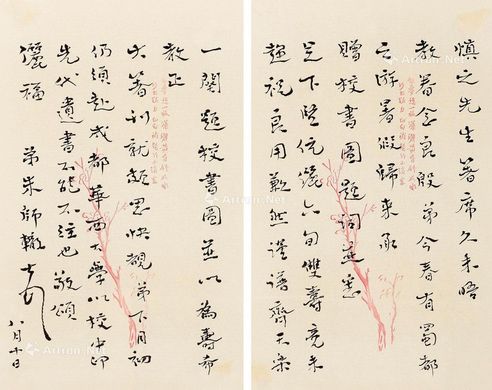 慎之先生著席久未晤
教眷念良殷弟今春有蜀都
之游暑假歸來承
贈校書圖題詞並悉
足下暨伉儷六旬雙壽竟未
趨祝良用歉然謹譜齊天樂
一闋題校書圖並以為壽希
教正
大著刊就頗思快覩弟下月初
仍須赴成都華西大學以校印
先代遺書不能不往也敬頌
儷福 弟朱師轍
八月十日
Artron.Net
Artron.Net